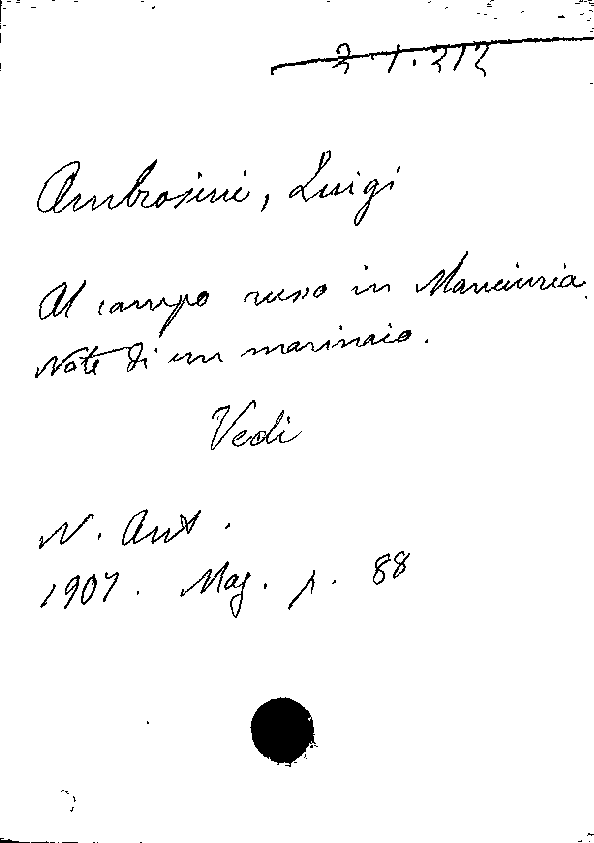 2.1.212
Ambrosini, Luigi
Al campo russo in Manciuria.
Note di un marinaio.
Vedi
N. Ant.
1907. Mag. p. 88